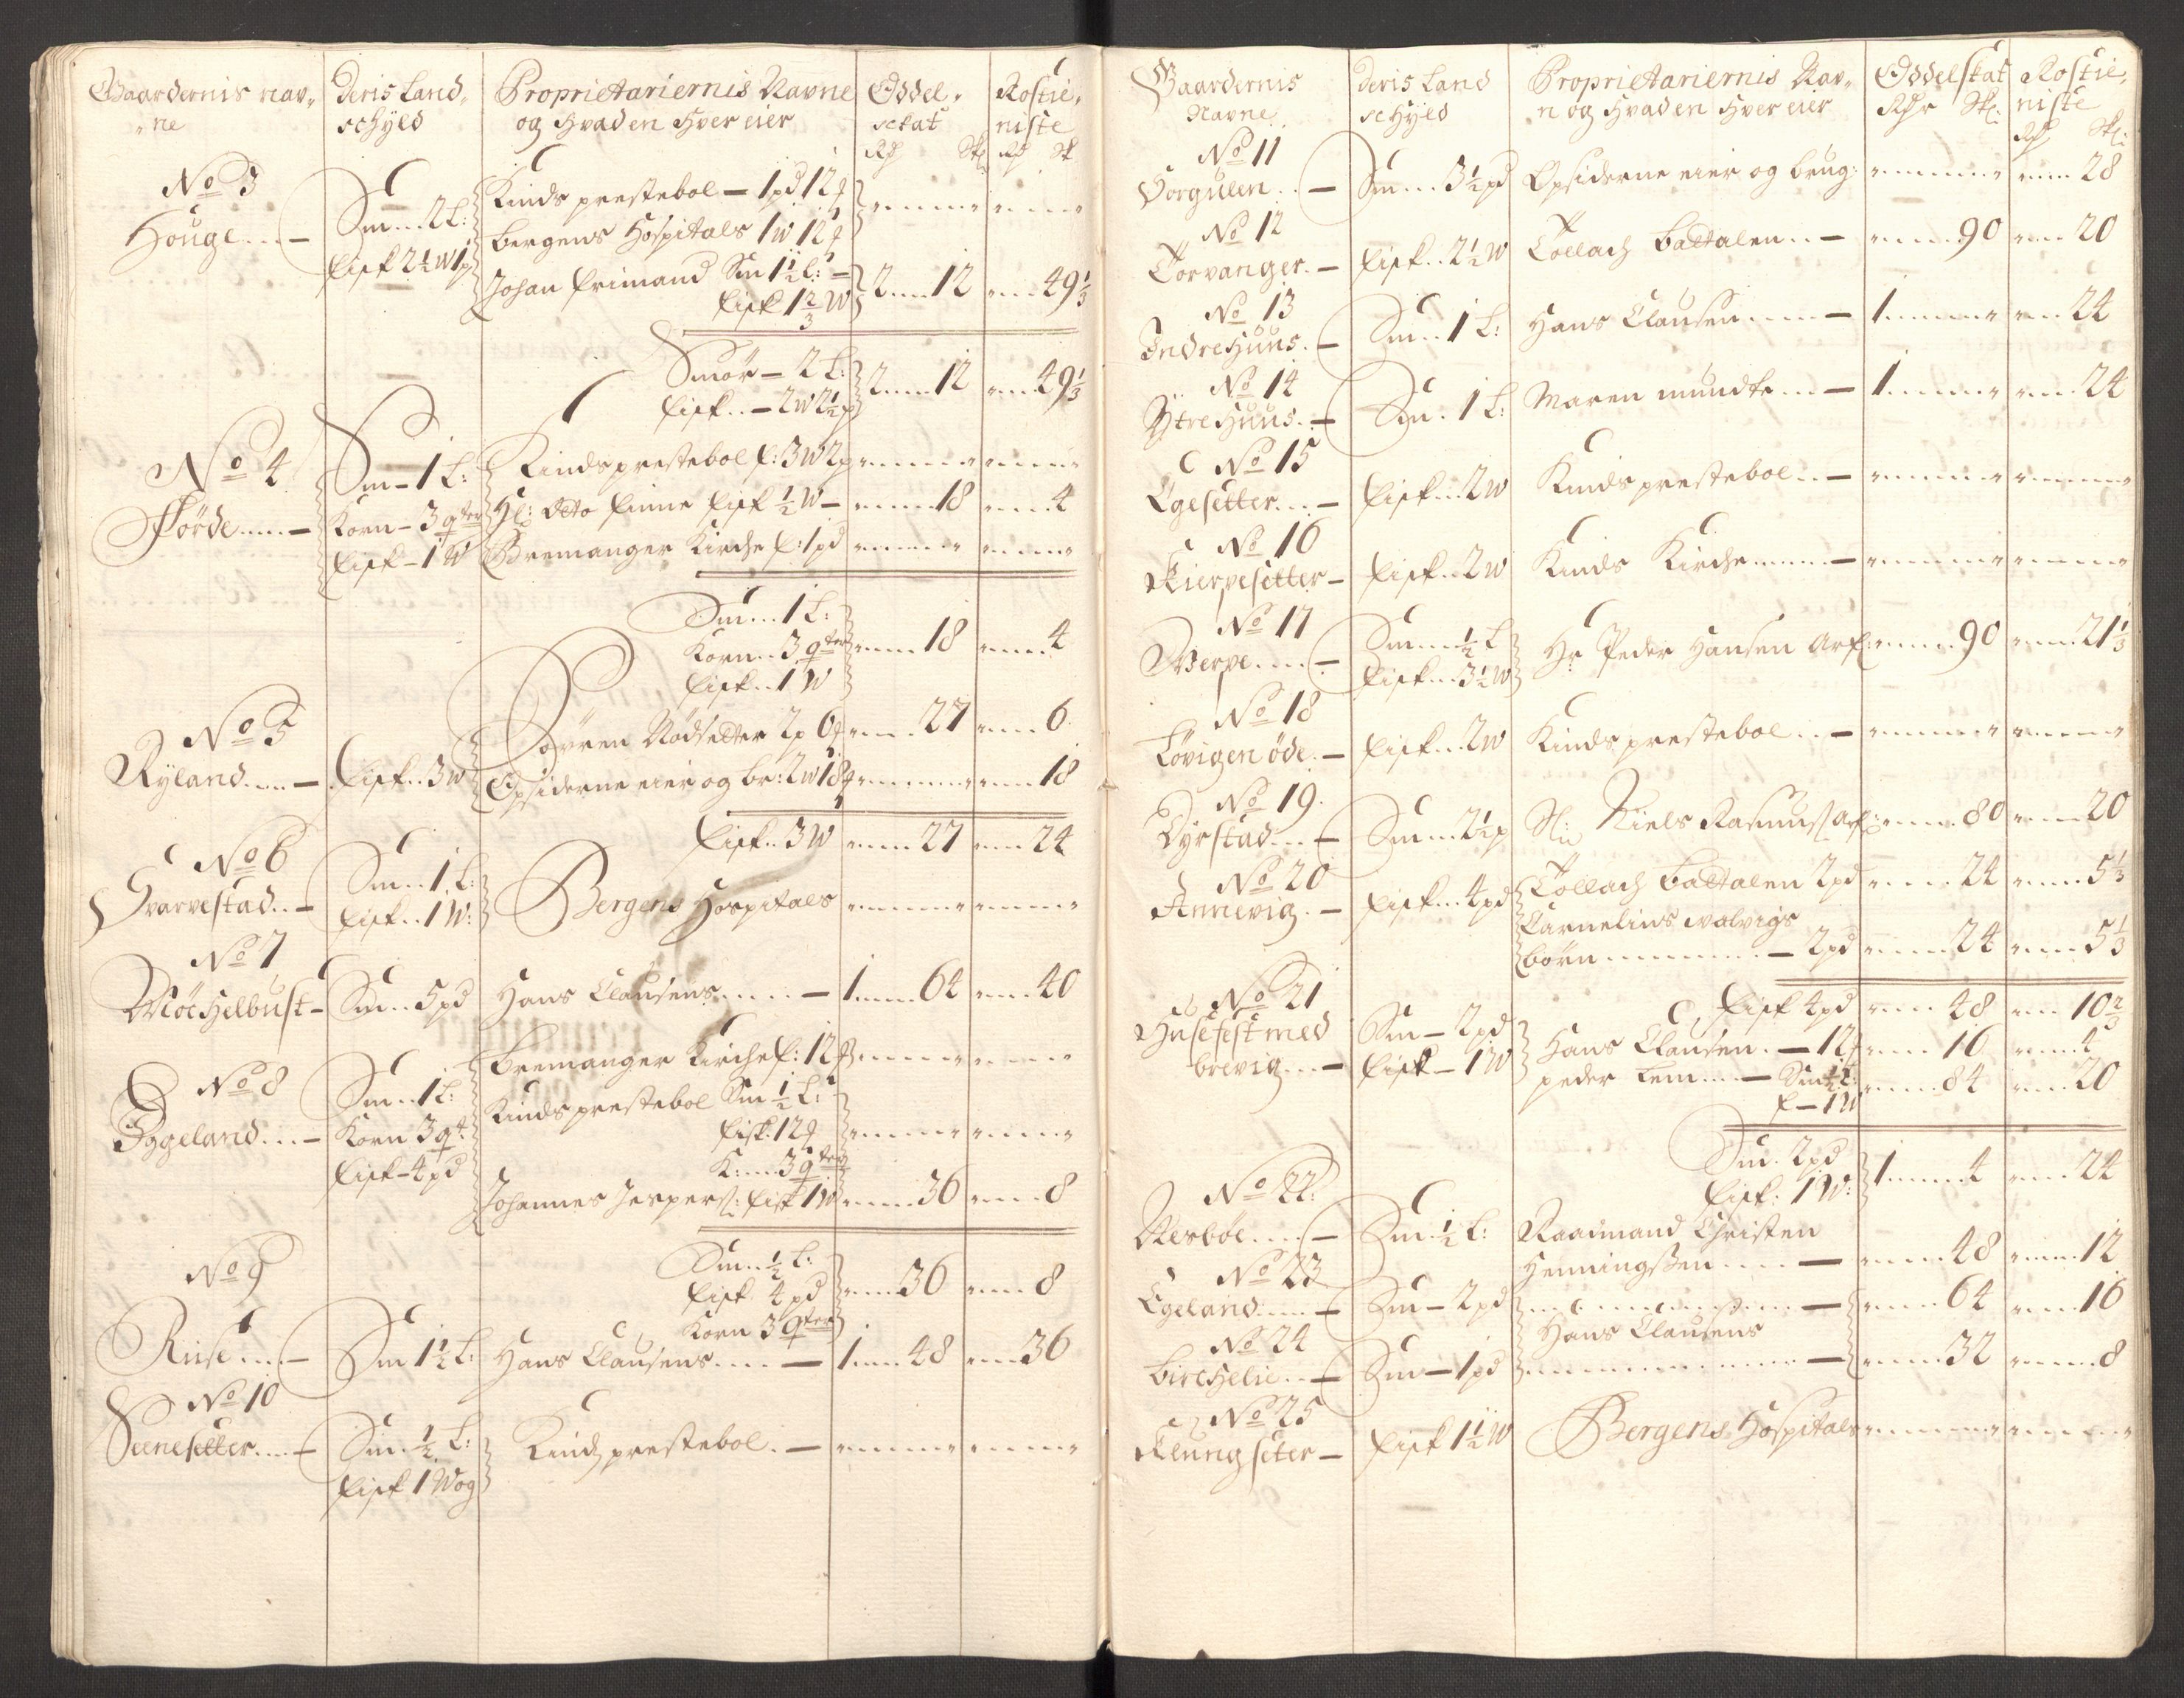 Gaardernis nav„
„ne
Deris Land„
schyld
Proprietariernis Navne
og Hvad en Hver eier
Oddel„
schat
Rostie„
niste
Rd Sk: Rd Sk
No 3
Houge
Sm 2 L:
Fisk 2½ W 1 p
Kinds prestebol — 1 pd 12
Bergens Hospitals 1 W 12
Johan Frimand Sm 1½ L: —
Fisk 1 2/3 W
2 12 49 1/3
Smör — 2 L:
Fisk — 2 W 2½ p
2 12 49 1/3
No 4
Förde
Sm — 1 L:
Korn — 3 qter
Fisk — 1 W
Kinds prestebol F: 3 W 2 p
Hr: Otto Finne Fisk ½ W — 18 4
Bremanger Kirche F: 1 pd
Sm 1 L:
Korn 3 qter
Fisk 1 W
18 4
No 5
Ryland
Fisk 3 W
Sörren Nödsetter 2 p 6 27 6
Opsiderne eier og br: 2 W 18 18
Fisk 3 W 27 24
No 6
Svarvestad
Sm 1 L:
Fisk 1 W:
Bergens Hospitals
No 7
Möchelbust — Sm 5 pd Hans Clausens — 1 64 40
No 8
Iggeland
Sm 1 L:
Korn 3 qt
Fisk — 4 pd
Bremanger Kirche F: 12
Kinds prestebol Sm ½ L:
Fisk: 12
K: 3 qter
Johannes Jespers: Fisk 1 W 36 8
Sm ½ L:
Fisk 4 pd
Korn 3 qter
36 8
No 9
Rise — Sm 1½ L: Hans Clausens — 1 48 36
No 10
Seenesetter
Sm ½ L:
Fisk 1 Wog
Kinds prestebol —
Gaardernis
Navne
Deris Land
schyld
Proprietariernis Nav„
n og Hvad en Hver eier
Oddelskat
Rdr Sk:
Rostie„
niste
Rd Sk:
No 11
Horgulen — Sm 3½ pd Opsiderne eier og brug: 28
No 12
Torvanger — Fisk 2½ W Tollach Baltalen — 90 20
No 13
Indre Huus — Sm 1 L: Hans Clausen — 1 24
No 14
Ytre Huus — Sm 1 L: Maren Mundte — 1 24
No 15
Egesetter — Fisk 2 W Kinds prestebol —
No 16
Kierpesetter — Fisk 2 W Kinds Kirche —
No 17
Werpe
Sm ½ L
Fisk 3½ W
Hr Peder Hansen Arf: 90 21 1/3
No 18
Lövigen öde — Fisk 2 W Kinds prestebol —
No 19
Dyrstad — Sm 2½ p Sl: Niels Rasmus: Arf: 80 20
No 20
Annevig — Fisk 4 pd
Tollach Baltalen 2 pd 24 5 1/3
Carnelius Walvigs
börn — 2 pd 24 5 1/3
Fisk 4 pd 48 10 2/3
No 21
Husefest med
brevig
Sm — 2 pd
Fisk — 1 W
Hans Clausen — 12 16 4
peder Lem — Sm ½ L:
F — 1 W
84 20
Sm 2 pd
Fisk: 1 W:
1 4 24
No 22
Nesböe — Sm ½ L:
Raadmand Christen
Henningssen — 48 12
No 23
Egeland — Sm — 2 pd 64 16
Hans Clausens
No 24
Birchelie — Sm — 1 pd 32 8
No 25
Klungseter — Fisk 1½ W Bergens Hospitals